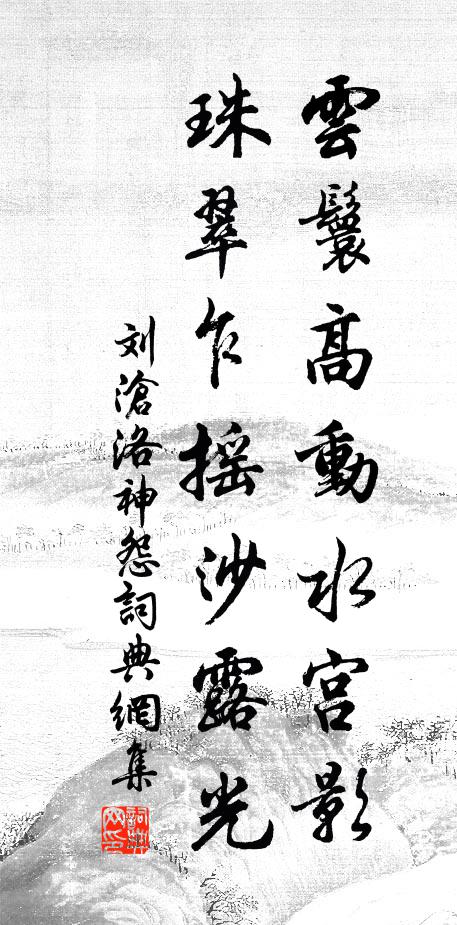 雲鬟高動水宮影
珠翠乍搖沙露光
刘滄洛神怨詞典網集